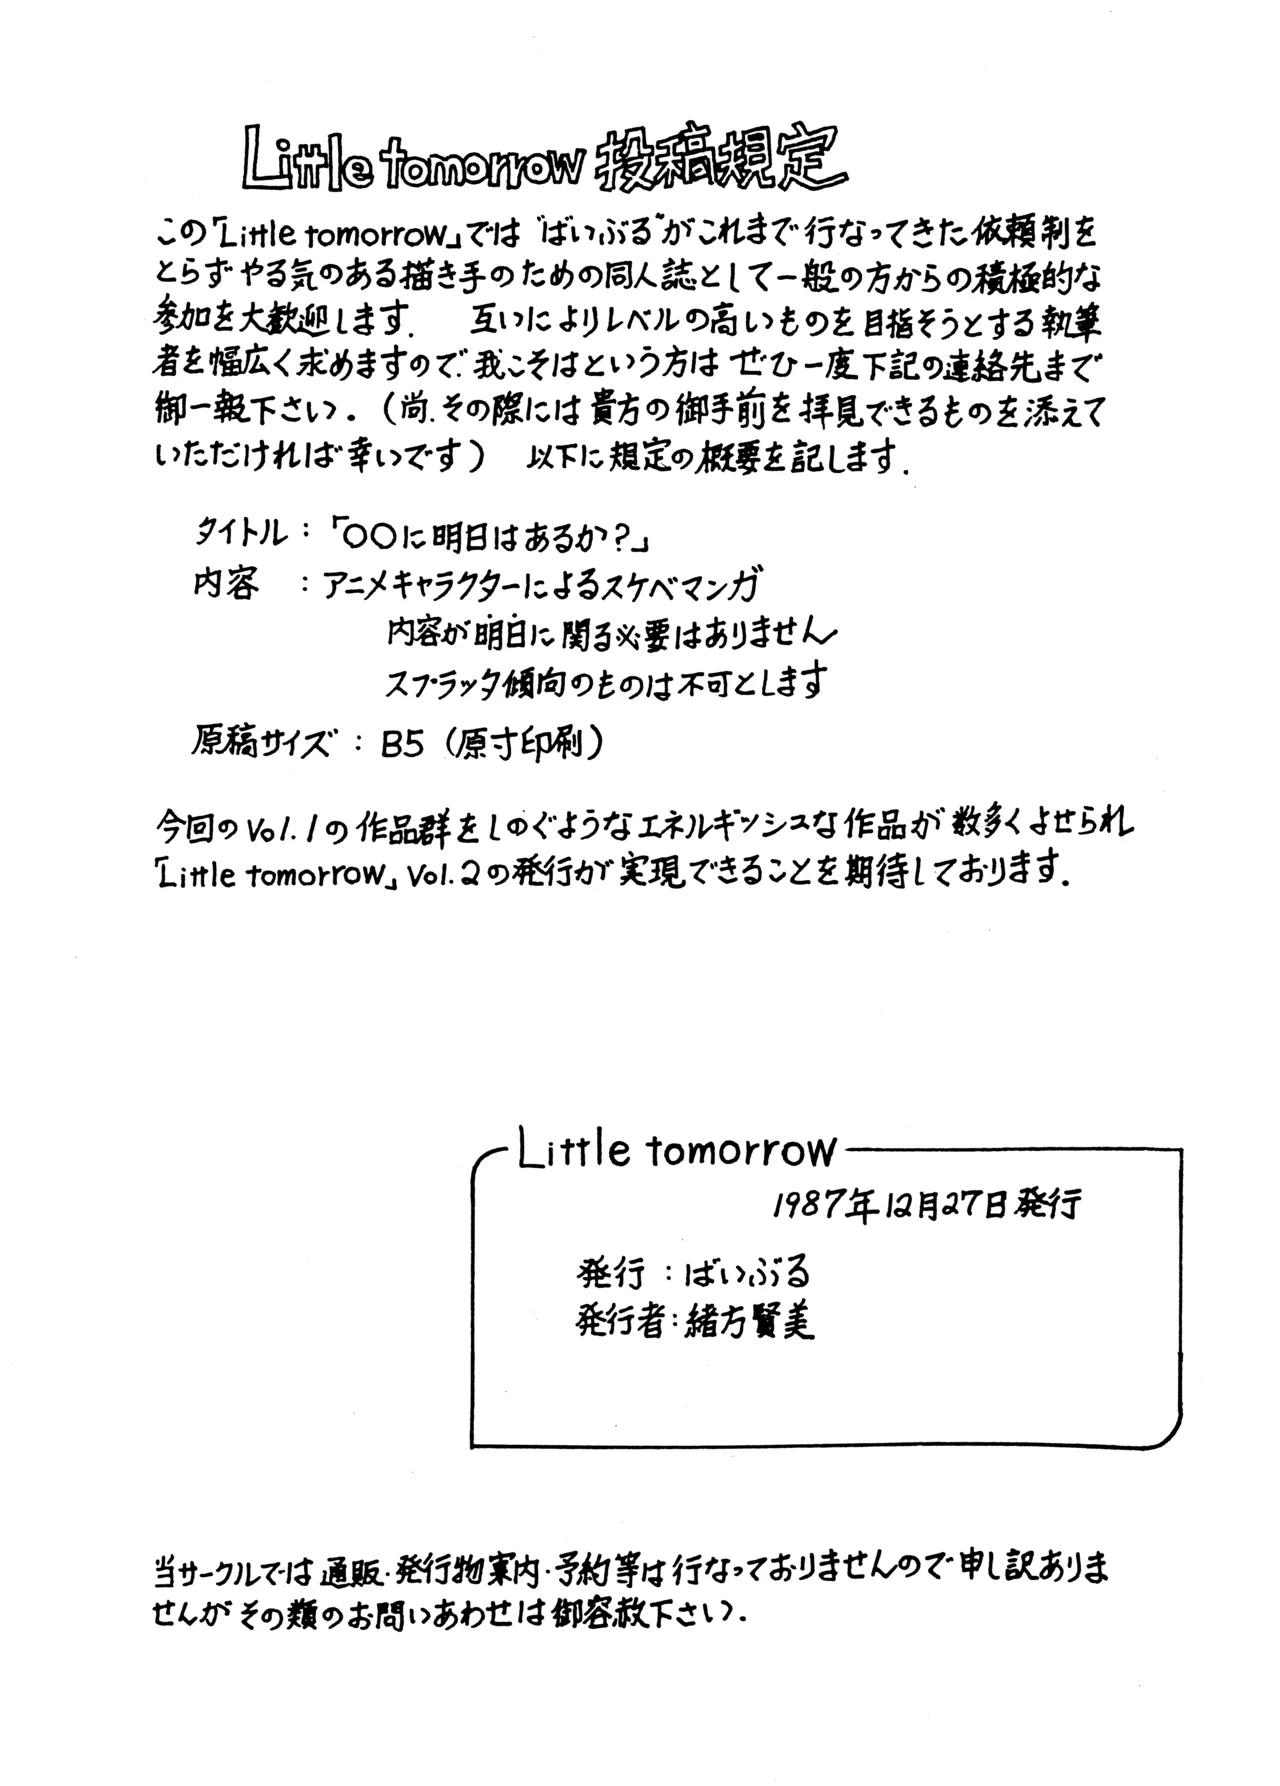 Little tomorrow 投稿規定
この「Little tomorrow」では"ばいぶる"がこれまで行なってきた依頼制を
とらずやる気のある描き手のための同人誌として一般の方からの積極的な
参加を大歓迎します. 互いによりレベルの高いものを目指そうとする執筆
者を幅広く求めますので、我こそはという方はぜひ一度下記の連絡先まで
御一報下さい.(尚、その際には貴方の御手前を拝見できるものを添えて
いただければ幸いです) 以下に規定の概要を記します.
タイトル:「○○に明日はあるか?」
内容 :アニメキャラクターによるスケベマンガ
内容が明日に関る必要はありません
スプラッタ傾向のものは不可とします
原稿サイズ:B5(原寸印刷)
今回のVol.1の作品群をしのぐようなエネルギッシュな作品が数多くよせられ
「Little tomorrow」Vol.2の発行が実現できることを期待しております.
Little tomorrow
1987年12月27日発行
発行:ばいぶる
発行者:緒方賢美
当サークルでは通販・発行物案内・予約等は行なっておりませんので申し訳ありま
せんがその類のお問いあわせは御容赦下さい.